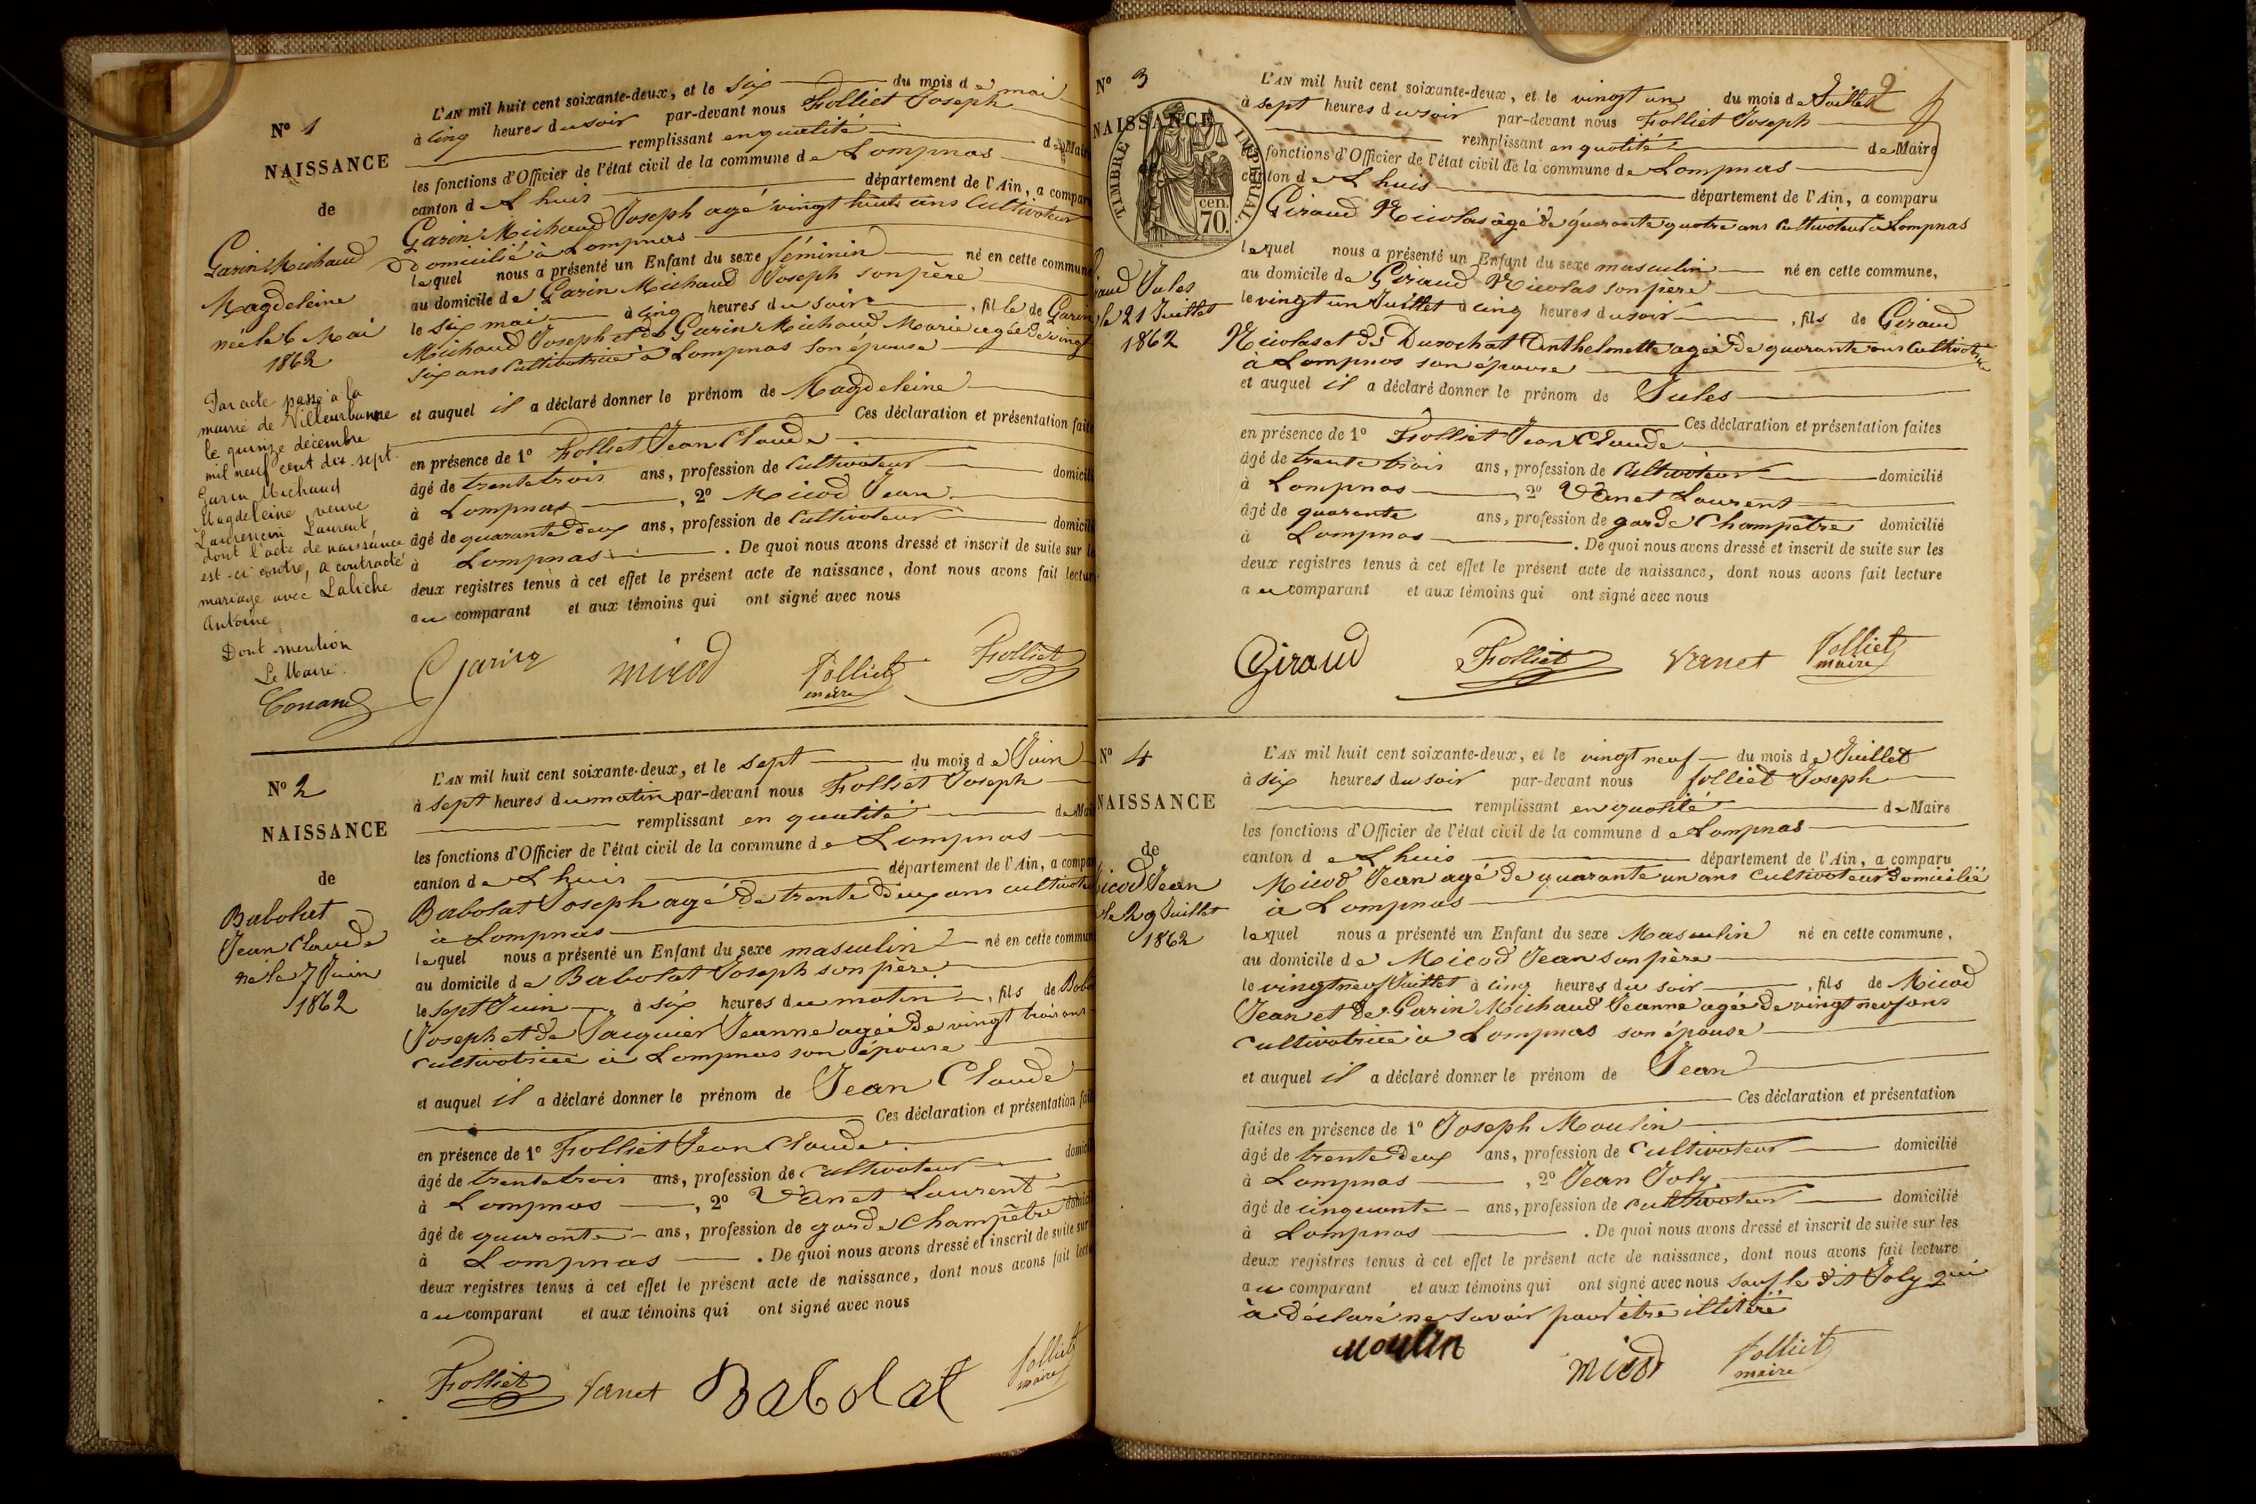 Nº 1
NAISSANCE
de
Garin Michaud
Magdeleine
née le 6 Mai
1862
Par acte passé à la
mairie de Villeurbanne
le quinze décembre
mil neuf cent dix-sept
Garin Michaud
Magdeleine, veuve
Laurencin Laurent
dont l'acte de naissance
est ci contre, a contracté
mariage avec Laliche
Antoine
Dont mention
Le Maire
L'AN mil huit cent soixante-deux, et le six du mois de mai
à cinq heures du soir par-devant nous Folliet Joseph
remplissant en qualité de Maire
les fonctions d'Officier de l'état civil de la commune de Lompnas
canton de Lhuis département de l'Ain, a compar
Garin Michaud Joseph agé vingt huit ans Cultivateur
domicilié à Lompnas
lequel nous a présenté un Enfant du sexe féminin né en cette commune
au domicile de Garin Michaud Joseph son père
le six mai à cinq heures du soir, fille de Garin
Michaud Joseph et de Garin Michaud Marie agée de vingt
six ans Cultivatrice à Lompnas son épouse
et auquel il a déclaré donner le prénom de Magdeleine
Ces déclaration et présentation faite
en présence de 1º Folliet Jean Claude
âgé de trente trois ans, profession de Cultivateur domicili
à Lompnas, 2º Micod Jean
âgé de quarante deux ans, profession de Cultivateur domicili
à Lompnas. De quoi nous avons dressé et inscrit de suite sur le
deux registres tenus à cet effet le présent acte de naissance, dont nous avons fait lectur
au comparant et aux témoins qui ont signé avec nous
Garin micod Folliet maire Folliet
Nº 2
NAISSANCE
de
Babolat
Jean Claude
né le 7 Juin
1862
L'AN mil huit cent soixante-deux, et le sept du mois de Juin
à sept heures du matin par-devant nous Folliet Joseph
remplissant en qualité de Mai
les fonctions d'Officier de l'état civil de la commune de Lompnas
canton de Lhuis département de l'Ain, a compar
Babolat Joseph agé de trente deux ans cultivate
à Lompnas
lequel nous a présenté un Enfant du sexe masculin né en cette commun
au domicile de Babolat Joseph son père
le sept Juin à six heures du matin, fils de Babo
Joseph et de Jacquier Jeanne agée de vingt trois ans
cultivatrice à Lompnas son épouse
et auquel il a déclaré donner le prénom de Jean Claude
Ces déclaration et présentation fai
en présence de 1º Folliet Jean Claude
âgé de trente trois ans, profession de cultivateur domicili
à Lompnas, 2º Vanet Laurent
âgé de quarante ans, profession de garde Champêtre domici
à Lompnas. De quoi nous avons dressé et inscrit de suite sur
deux registres tenus à cet effet le présent acte de naissance, dont nous avons fait lectu
au comparant et aux témoins qui ont signé avec nous
Folliet Vanet Babolat Folliet maire
2
Nº 3
NAISSANCE
TIMBRE IMPÉRIAL
cen. 70.
raud Jules
le 21 Juillet
1862
L'AN mil huit cent soixante-deux, et le vingt un du mois de Juillet
à sept heures du soir par-devant nous Folliet Joseph
remplissant en qualité de Maire
les fonctions d'Officier de l'état civil de la commune de Lompnas
canton de Lhuis département de l'Ain, a comparu
Giraud Nicolas âgé de quarante quatre ans Cultivateur à Lompnas
lequel nous a présenté un Enfant du sexe masculin né en cette commune,
au domicile de Giraud Nicolas son père
le vingt un Juillet à cinq heures du soir, fils de Giraud
Nicolas et de Durochat Anthelmette agée de quarante ans Cultivatrice
à Lompnas son épouse
et auquel il a déclaré donner le prénom de Jules
Ces déclaration et présentation faites
en présence de 1º Folliet Jean Claude
âgé de trente trois ans, profession de Cultivateur domicilié
à Lompnas, 2º Vanet Laurent
âgé de quarante ans, profession de garde Champêtre domicilié
à Lompnas. De quoi nous avons dressé et inscrit de suite sur les
deux registres tenus à cet effet le présent acte de naissance, dont nous avons fait lecture
au comparant et aux témoins qui ont signé avec nous
Giraud Folliet Vanet Folliet maire
Nº 4
NAISSANCE
de
icod Jean
le 29 Juillet
1862
L'AN mil huit cent soixante-deux, et le vingt neuf du mois de Juillet
à six heures du soir par-devant nous folliet Joseph
remplissant en qualité de Maire
les fonctions d'Officier de l'état civil de la commune de Lompnas
canton de Lhuis département de l'Ain, a comparu
Micod Jean agé de quarante un ans Cultivateur domicilié
à Lompnas
lequel nous a présenté un Enfant du sexe Masculin né en cette commune,
au domicile de Micod Jean son père
le vingt neuf Juillet à cinq heures du soir, fils de Micod
Jean et de Garin Michaud Jeanne agée de vingt neuf ans
cultivatrice à Lompnas son épouse
et auquel il a déclaré donner le prénom de Jean
Ces déclaration et présentation
faites en présence de 1º Joseph Moulin
âgé de trente deux ans, profession de Cultivateur domicilié
à Lompnas, 2º Jean Joly
âgé de cinquante ans, profession de cultivateur domicilié
à Lompnas. De quoi nous avons dressé et inscrit de suite sur les
deux registres tenus à cet effet le présent acte de naissance, dont nous avons fait lecture
au comparant et aux témoins qui ont signé avec nous sauf le dit Joly qui
à déclaré ne savoir pour être illitéré
Moulin micod Folliet maire